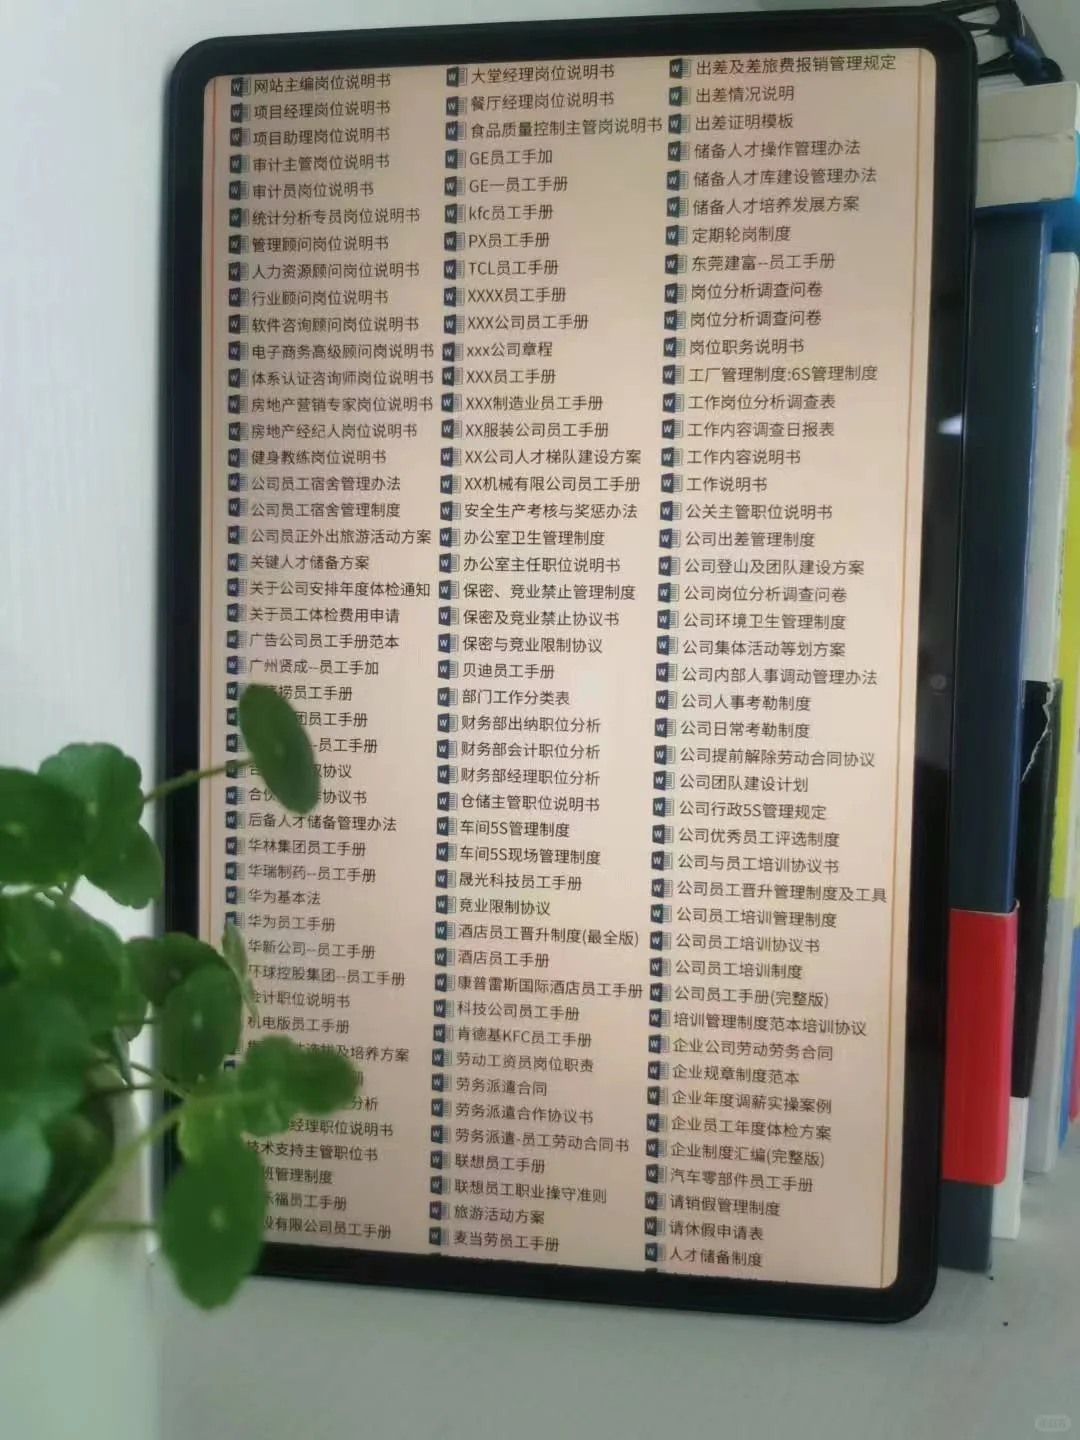 网站主编岗位说明书
项目经理岗位说明书
项目助理岗位说明书
审计主管岗位说明书
审计员岗位说明书
统计分析专员岗位说明书
管理顾问岗位说明书
人力资源顾问岗位说明书
行业顾问岗位说明书
软件咨询顾问岗位说明书
电子商务高级顾问岗说明书
体系认证咨询师岗位说明书
房地产营销专家岗位说明书
房地产经纪人岗位说明书
健身教练岗位说明书
公司员工宿舍管理办法
公司员工宿舍管理制度
公司员正外出旅游活动方案
关键人才储备方案
关于公司安排年度体检通知
关于员工体检费用申请
广告公司员工手册范本
广州贤成--员工手加
捞员工手册
团员工手册
--员工手册
协议
协议书
后备人才储备管理办法
华林集团员工手册
华瑞制药--员工手册
华为基本法
华为员工手册
华新公司--员工手册
环球控股集团--员工手册
会计职位说明书
机电版员工手册
及培养方案
册
分析
经理职位说明书
技术支持主管职位书
班管理制度
乐福员工手册
有限公司员工手册
大堂经理岗位说明书
餐厅经理岗位说明书
食品质量控制主管岗说明书
GE员工手加
GE一员工手册
kfc员工手册
PX员工手册
TCL员工手册
XXXX员工手册
XXX公司员工手册
xxx公司章程
XXX员工手册
XXX制造业员工手册
XX服装公司员工手册
XX公司人才梯队建设方案
XX机械有限公司员工手册
安全生产考核与奖惩办法
办公室卫生管理制度
办公室主任职位说明书
保密、竞业禁止管理制度
保密及竞业禁止协议书
保密与竞业限制协议
贝迪员工手册
部门工作分类表
财务部出纳职位分析
财务部会计职位分析
财务部经理职位分析
仓储主管职位说明书
车间5S管理制度
车间5S现场管理制度
晟光科技员工手册
竞业限制协议
酒店员工晋升制度(最全版)
酒店员工手册
康普雷斯国际酒店员工手册
科技公司员工手册
肯德基KFC员工手册
劳动工资员岗位职责
劳务派遣合同
劳务派遣合作协议书
劳务派遣-员工劳动合同书
联想员工手册
联想员工职业操守准则
旅游活动方案
麦当劳员工手册
出差及差旅费报销管理规定
出差情况说明
出差证明模板
储备人才操作管理办法
储备人才库建设管理办法
储备人才培养发展方案
定期轮岗制度
东莞建富--员工手册
岗位分析调查问卷
岗位分析调查问卷
岗位职务说明书
工厂管理制度:6S管理制度
工作岗位分析调查表
工作内容调查日报表
工作内容说明书
工作说明书
公关主管职位说明书
公司出差管理制度
公司登山及团队建设方案
公司岗位分析调查问卷
公司环境卫生管理制度
公司集体活动等划方案
公司内部人事调动管理办法
公司人事考勤制度
公司日常考勤制度
公司提前解除劳动合同协议
公司团队建设计划
公司行政5S管理规定
公司优秀员工评选制度
公司与员工培训协议书
公司员工晋升管理制度及工具
公司员工培训管理制度
公司员工培训协议书
公司员工培训制度
公司员工手册(完整版)
培训管理制度范本培训协议
企业公司劳动劳务合同
企业规章制度范本
企业年度调薪实操案例
企业员工年度体检方案
企业制度汇编(完整版)
汽车零部件员工手册
请销假管理制度
请休假申请表
人才储备制度